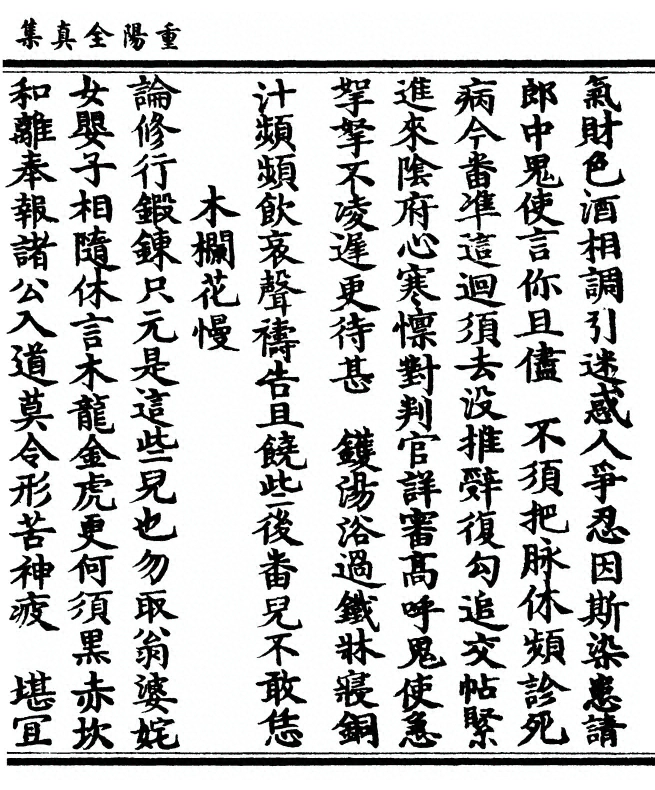 重陽全真集
氣財色酒相調引迷惑人爭忍因斯染患請
郎中鬼使言你且儘　不須把脉休頻診死
病今番準這迴須去没推辤復勾追交帖緊
進來陰府心寒懔對判官詳審高呼鬼使急
拏拏不凌遲更待甚　鑊湯浴過鐵牀寢銅
汁頻頻飲哀聲禱告且饒些後番兒不敢恁
木欄花慢
論修行鍛鍊只元是這些兒也勿取翁婆姹
女嬰子相隨休言木龍金虎更何須黑赤坎
和離奉報諸公入道莫令形苦神疲　堪冝